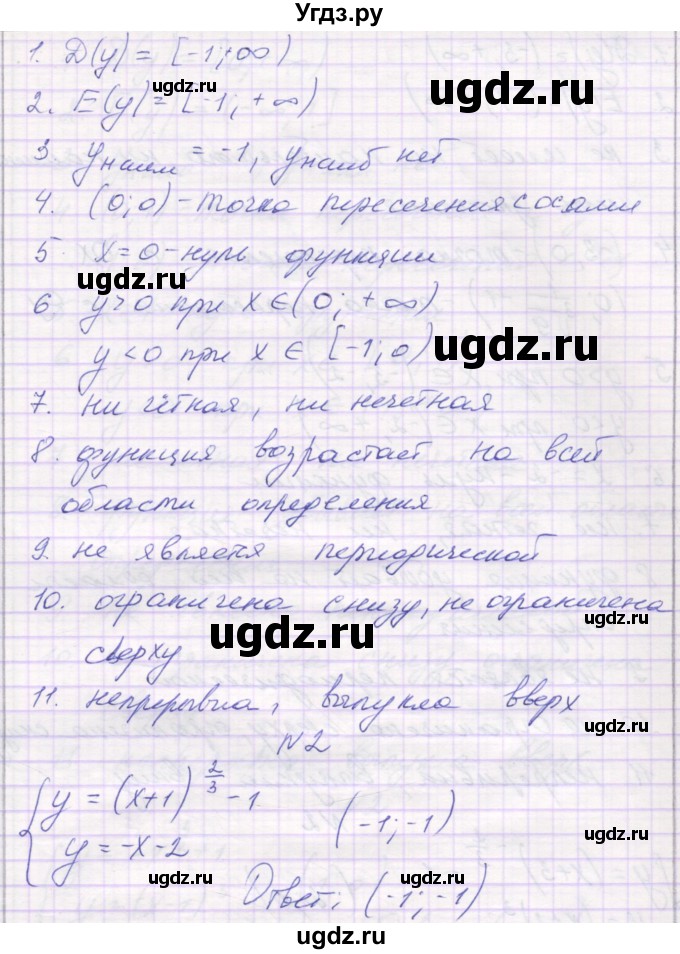 Угдз.ру
1. D(y) = [-1;+∞)
ugdz.ru
ugdz.ru
2. E(y)=[-1; +∞)
3. yнаим = -1, yнаиб нет
4. (0;0) - точка пересечения с осями
ugdz.ru
5. x=0 - нуль функции
ugdz.ru
6 y>0 при x∈(0; +∞)
ugdz.ru
ugdz.ru
y<0 при x ∈ [-1;0)
7. ни чётная, ни нечетная
8. функция возрастает на всей
ugdz.ru
области определения
9. не является периодической
10. ограничена снизу, не ограничена
ugdz.ru
ugdz.ru
сверху
11. непрерывна, выпукла вверх
ugdz.ru
N2
{ y = (x+1)^(2/3) - 1
y = -x-2
(-1;-1)
ugdz.ru
ugdz.ru
ugdz.ru
Ответ: (-1;-1)
ugdz.ru